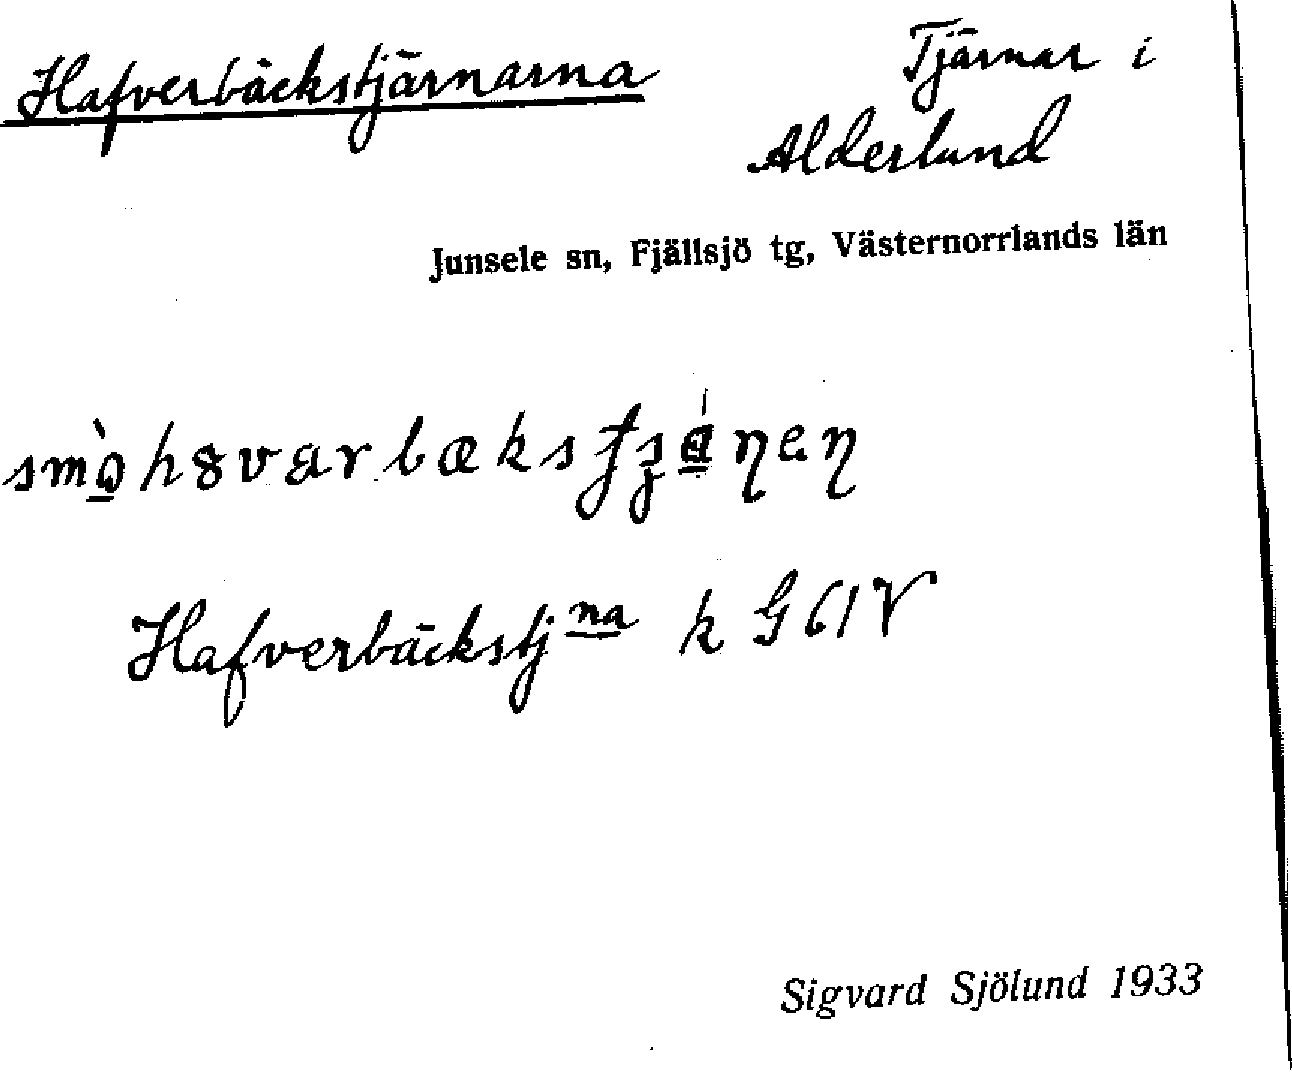 Hafverbäckstjärnarna
Tjärnar i
Alderlund
Junsele sn, Fjällsjö tg, Västernorrlands län
Hafverbäckstj na k G 61 V
Sigvard Sjölund 1933